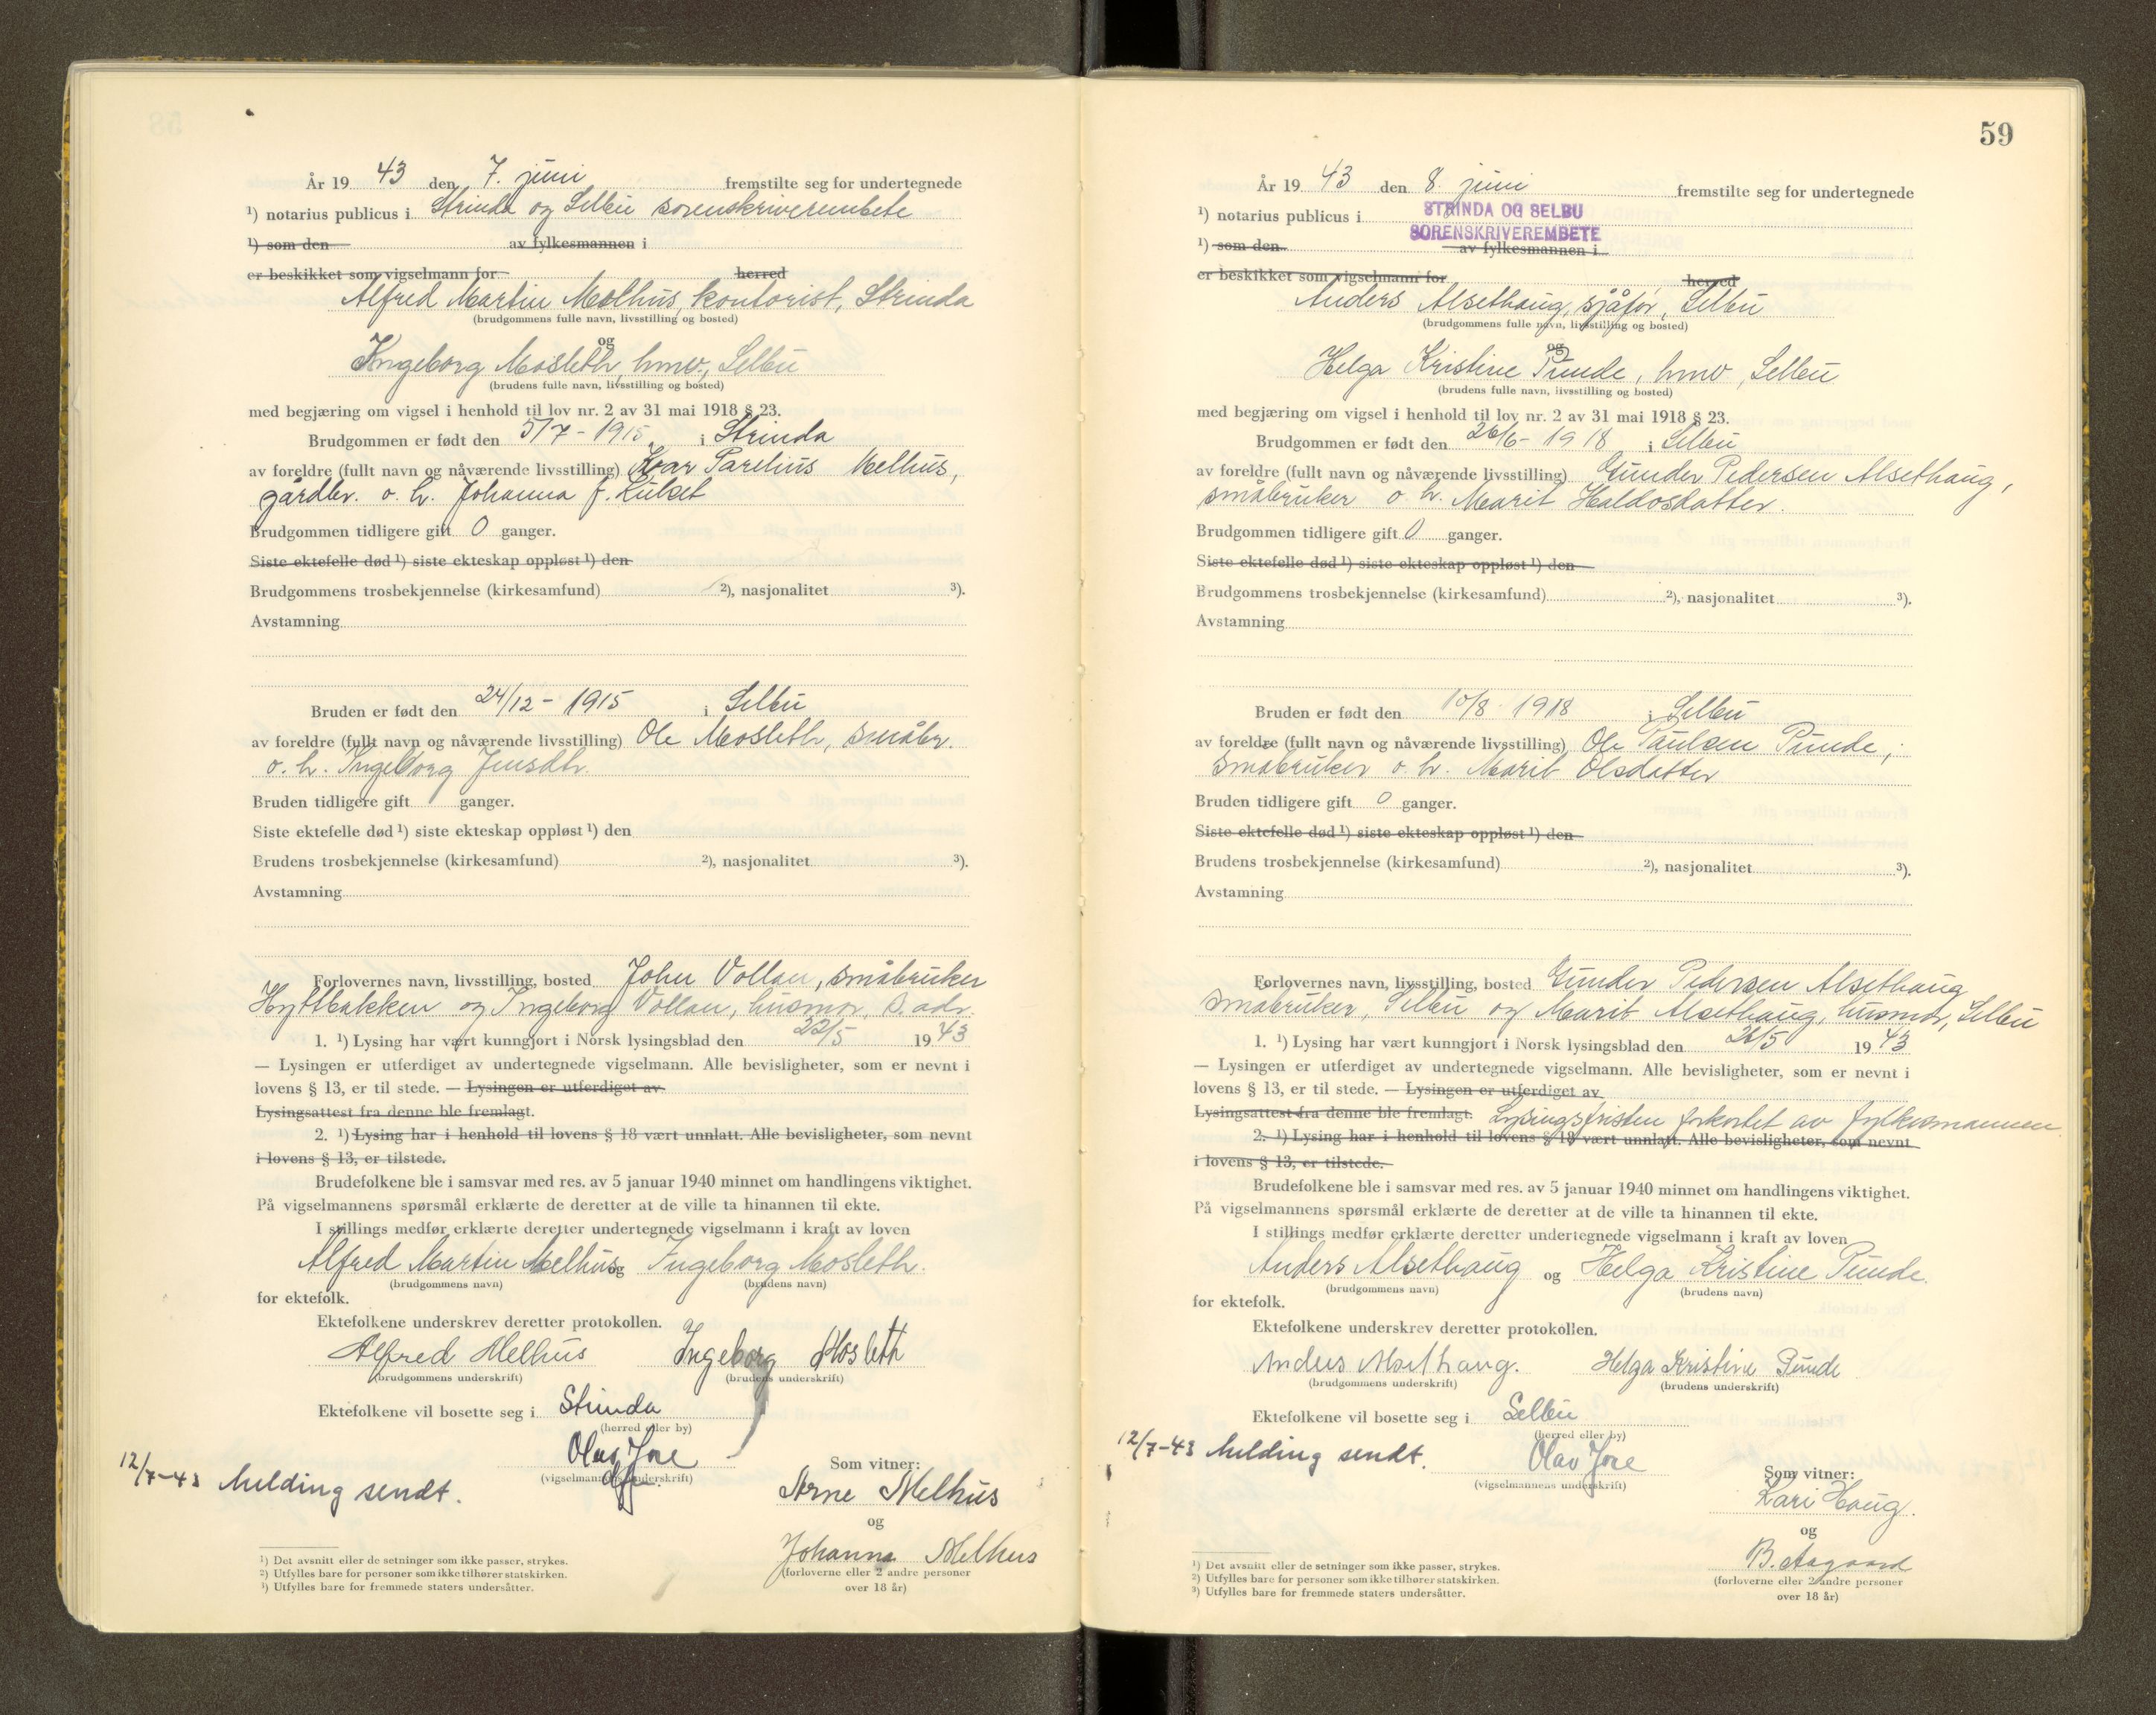 År 19 43 den 7. juni fremstilte seg for undertegnede
¹) notarius publicus i Strinda og Selbu sorenskriverembete
¹) som den av fylkesmannen i
er beskikket som vigselmann for herred
Alfred Martin Melhus, kontorist, Strinda
(brudgommens fulle navn, livsstilling og bosted)
og
Ingeborg Mosleth, hmv., Selbu
(brudens fulle navn, livsstilling og bosted)
med begjæring om vigsel i henhold til lov nr. 2 av 31 mai 1918 § 23.
Brudgommen er født den 5/7 - 1915. i Strinda
av foreldre (fullt navn og nåværende livsstilling) Ivar Parelius Melhus,
gårdbr. o. h. Johanna f. Kulset
Brudgommen tidligere gift 0 ganger.
Siste ektefelle død ¹) siste ekteskap oppløst ¹) den
Brudgommens trosbekjennelse (kirkesamfund) ²), nasjonalitet ³).
Avstamning
Bruden er født den 24/12 - 1915 i Selbu
av foreldre (fullt navn og nåværende livsstilling) Ole Mosleth, småbr.
o. h. Ingeborg Jensdtr.
Bruden tidligere gift ganger.
Siste ektefelle død ¹) siste ekteskap oppløst ¹) den
Brudens trosbekjennelse (kirkesamfund) ²), nasjonalitet ³).
Avstamning
Forlovernes navn, livsstilling, bosted John Vollan, småbruker
Hyttbakken og Ingeborg Vollan, husmor, s. adr.
1. ¹) Lysing har vært kunngjort i Norsk lysingsblad den 22/5 19 43
— Lysingen er utferdiget av undertegnede vigselmann. Alle bevisligheter, som er nevnt i
lovens § 13, er til stede. — Lysingen er utferdiget av
Lysingsattest fra denne ble fremlagt.
2. ¹) Lysing har i henhold til lovens § 18 vært unnlatt. Alle bevisligheter, som nevnt
i lovens § 13, er tilstede.
Brudefolkene ble i samsvar med res. av 5 januar 1940 minnet om handlingens viktighet.
På vigselmannens spørsmål erklærte de deretter at de ville ta hinannen til ekte.
I stillings medfør erklærte deretter undertegnede vigselmann i kraft av loven
Alfred Martin Melhus og Ingeborg Mosleth.
(brudgommens navn) (brudens navn)
for ektefolk.
Ektefolkene underskrev deretter protokollen.
Alfred Melhus Ingeborg Mosleth
(brudgommens underskrift) (brudens underskrift)
Ektefolkene vil bosette seg i Strinda
(herred eller by)
Olav Jore
(vigselmannens underskrift)
Som vitner:
12/7-43 Melding sendt.
Arne Melhus
og
Johanna Melhus
(forloverne eller 2 andre personer
over 18 år)
¹) Det avsnitt eller de setninger som ikke passer, strykes.
²) Utfylles bare for personer som ikke tilhører statskirken.
³) Utfylles bare for fremmede staters undersåtter.
59
År 19 43 den 8. juni fremstilte seg for undertegnede
¹) notarius publicus i STRINDA OG SELBU
SORENSKRIVEREMBETE
¹) som den av fylkesmannen i
er beskikket som vigselmann for herred
Anders Alsethaug, sjåfør, Selbu
(brudgommens fulle navn, livsstilling og bosted)
og
Helga Kristine Punde, hmv, Selbu
(brudens fulle navn, livsstilling og bosted)
med begjæring om vigsel i henhold til lov nr. 2 av 31 mai 1918 § 23.
Brudgommen er født den 26/6 - 1918 i Selbu
av foreldre (fullt navn og nåværende livsstilling) Gunder Pedersen Alsethaug,
småbruker o. h. Marit Haldosdatter.
Brudgommen tidligere gift 0 ganger.
Siste ektefelle død ¹) siste ekteskap oppløst ¹) den
Brudgommens trosbekjennelse (kirkesamfund) ²), nasjonalitet ³).
Avstamning
Bruden er født den 10/8 - 1918 i Selbu
av foreldre (fullt navn og nåværende livsstilling) Ole Paulsen Punde,
småbruker o. h. Marit Olsdatter
Bruden tidligere gift 0 ganger.
Siste ektefelle død ¹) siste ekteskap oppløst ¹) den
Brudens trosbekjennelse (kirkesamfund) ²), nasjonalitet ³).
Avstamning
Forlovernes navn, livsstilling, bosted Gunder Pedersen Alsethaug
småbruker, Selbu og Marit Alsethaug, husmor, Selbu
1. ¹) Lysing har vært kunngjort i Norsk lysingsblad den 26/5 19 43
— Lysingen er utferdiget av undertegnede vigselmann. Alle bevisligheter, som er nevnt i
lovens § 13, er til stede. — Lysingen er utferdiget av
Lysingsattest fra denne ble fremlagt. Lysingsfristen forkortet av fylkesmannen.
2. ¹) Lysing har i henhold til lovens § 18 vært unnlatt. Alle bevisligheter, som nevnt
i lovens § 13, er tilstede.
Brudefolkene ble i samsvar med res. av 5 januar 1940 minnet om handlingens viktighet.
På vigselmannens spørsmål erklærte de deretter at de ville ta hinannen til ekte.
I stillings medfør erklærte deretter undertegnede vigselmann i kraft av loven
Anders Alsethaug og Helga Kristine Punde.
(brudgommens navn) (brudens navn)
for ektefolk.
Ektefolkene underskrev deretter protokollen.
Anders Alsethaug. Helga Kristine Punde
(brudgommens underskrift) (brudens underskrift)
Ektefolkene vil bosette seg i Selbu
(herred eller by)
12/7-43 Melding sendt.
Olav Jore
(vigselmannens underskrift)
Som vitner:
Kari Haug.
og
B. Aagaard
(forloverne eller 2 andre personer
over 18 år)
¹) Det avsnitt eller de setninger som ikke passer, strykes.
²) Utfylles bare for personer som ikke tilhører statskirken.
³) Utfylles bare for fremmede staters undersåtter.